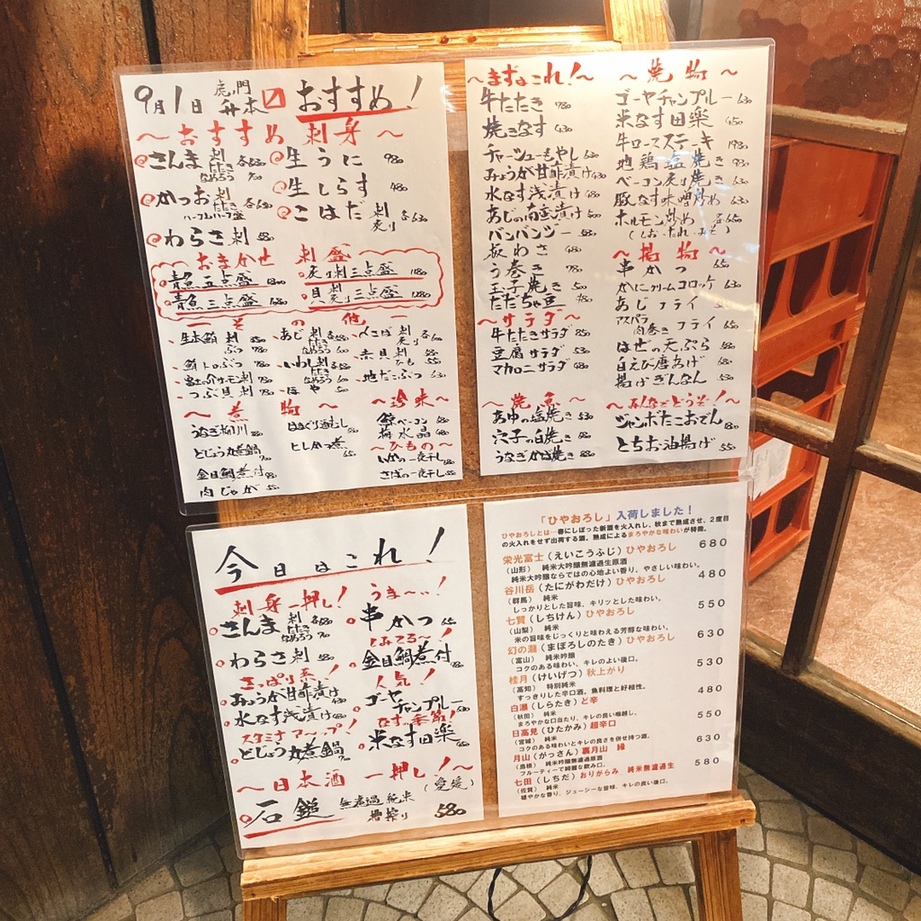 9月1日 虎ノ門 升本 おすすめ!
〜おすすめ 刺身〜
さんま 刺 たたき なめろう
生うに 980
生しらす 480
かつお 刺 たたき 各630
ハーフ&ハーフ盛
こはだ 刺 炙り 各630
わらさ刺
おまかせ 刺盛
青魚五点盛
炙り刺三点盛
青魚三点盛
貝刺炙り三点盛
その他
生本鮪 刺 ぶつ
あじ 刺 たたき なめろう
〆さば 刺 炙り
鮪トロぶつ
いわし 刺 たたき なめろう
赤貝刺 ひも
富士の介サーモン刺
地だこぶつ 630
つぶ貝刺 780
ほや
〜煮物〜
うなぎ柳川
どじょう丸煮鍋
金目鯛煮付
肉じゃが
白はまぐり酒むし
としかつ煮
〜珍味〜
鯨ベーコン
梅水晶
〜ひもの〜
いかの一夜干し
さばの一夜干し
〜まずはこれ!〜
牛たたき 780
焼きなす 430
チャーシューもやし
みょうが甘酢漬け 430
水なす浅漬け 480
あじの南蛮漬け
バンバンジー
板わさ 430
う巻き 780
玉子焼き
だだちゃ豆
〜サラダ〜
牛たたきサラダ
豆腐サラダ 530
マカロニサラダ 480
〜焼魚〜
あゆの塩焼き
穴子の白焼き
うなぎ白焼き
〜焼物〜
ゴーヤチャンプルー 630
米なす田楽
牛ロースステーキ
地鶏塩焼き
ベーコン炙り焼き
豚なす味噌炒め 630
ホルモン炒め
(しお・たれ・みそ)
〜揚物〜
串かつ
かにクリームコロッケ 630
あじフライ
アスパラ肉巻きフライ
はぜの天ぷら
白えび唐あげ
揚げぎんなん
〜みんなでどうぞ!〜
ジャンボたこおでん
とちお油揚げ
今日はこれ!
刺身一押し!
さんま 刺 たたき なめろう
わらさ刺
さっぱり系!
みょうが甘酢漬け
水なす浅漬け
スタミナアップ!
どじょう丸煮鍋
うま〜い!
串かつ
しみてる〜!
金目鯛煮付
人気!
ゴーヤチャンプルー
なす季節!
米なす田楽
〜日本酒 一押し!〜
(愛媛)
石鎚 無濾過純米 槽搾り 580
「ひやおろし」入荷しました!
ひやおろしとは…春にしぼった新酒を火入れし、秋まで熟成させ、2度目
の火入れをせず出荷する酒。熟成によるまろやかな味わいが特徴。
栄光富士(えいこうふじ)ひやおろし 680
(山形) 純米大吟醸無濾過生原酒
純米大吟醸ならではの心地よい香り、やさしい味わい。
谷川岳(たにがわだけ)ひやおろし 480
(群馬) 純米
しっかりとした旨味、キリッとした味わい。
七賢(しちけん)ひやおろし 550
(山梨) 純米
米の旨味をじっくりと味わえる芳醇な味わい。
幻の瀧(まぼろしのたき)ひやおろし 630
(富山) 純米吟醸
コクのある味わい、キレのよい後口。
桂月(けいげつ)秋上がり 530
(高知) 特別純米
すっきりした辛口酒。魚料理と好相性。
白瀑(しらたき)ど辛 480
(秋田) 純米
まろやかな口当たり、キレの良い喉越し。
日高見(ひたかみ)超辛口 550
(宮城) 純米
コクのある味わいとキレの良さを併せ持つ酒。
月山(がっさん)裏月山 縁 630
(島根) 純米吟醸無濾過原酒
フルーティーで綺麗な飲み口。
七田(しちだ)おりがらみ 純米無濾過生 580
(佐賀) 純米
穏やかな香り、ジューシーな旨味、キレの良い後口。